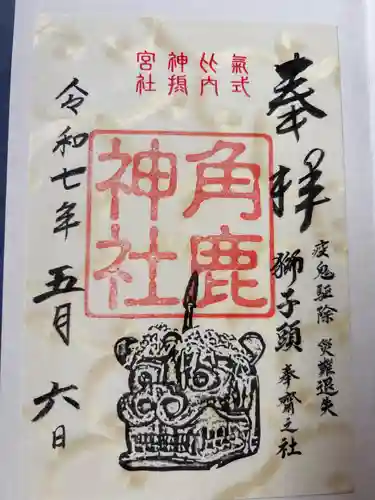 奉拝
疫鬼駆除 災難退失
獅子頭 奉齋之社
氣式
比内
神
宮社
角鹿
神社
令和七年
五月
六日